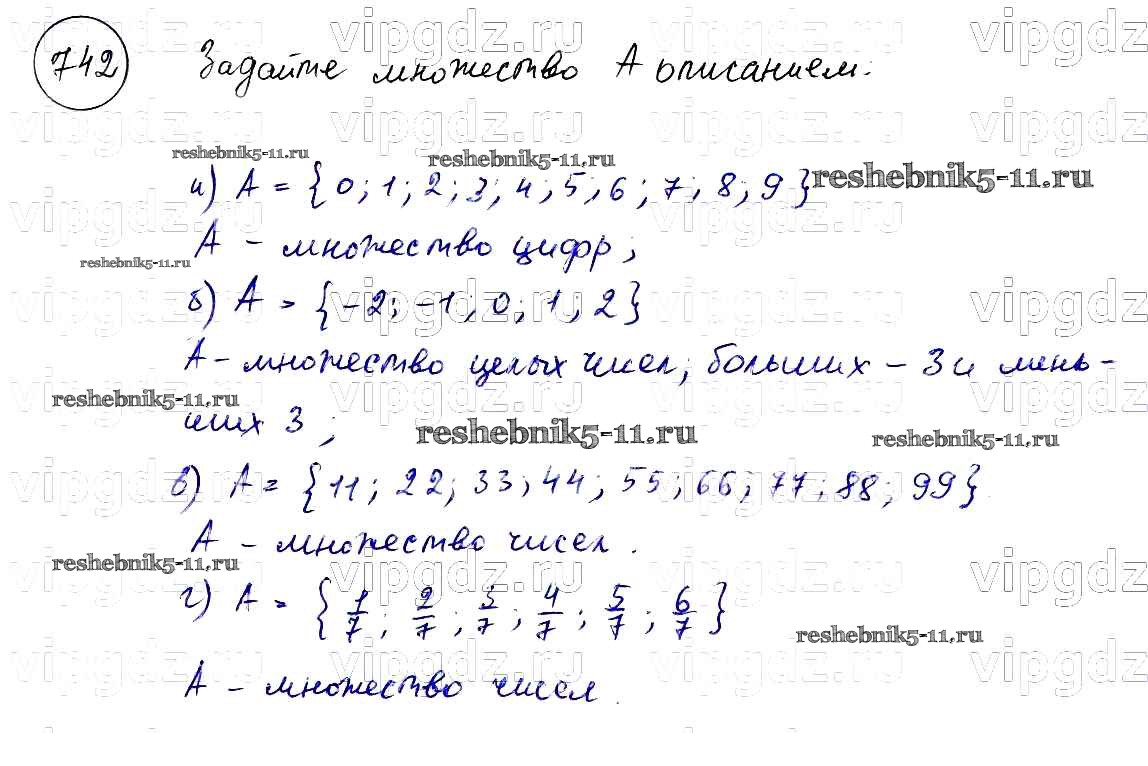 742 Задайте множество А описанием:
а) А = {0; 1; 2; 3; 4; 5; 6; 7; 8; 9}
А - множество цифр;
б) А = {-2; -1; 0; 1; 2}
А - множество целых чисел, больших - 3 и мень-
ших 3;
в) А = {11; 22; 33; 44; 55; 66; 77; 88; 99}
А - множество чисел.
г) А = {1/7; 2/7; 3/7; 4/7; 5/7; 6/7}
А - множество чисел.
vipgdz.ru
reshebnik5-11.ru